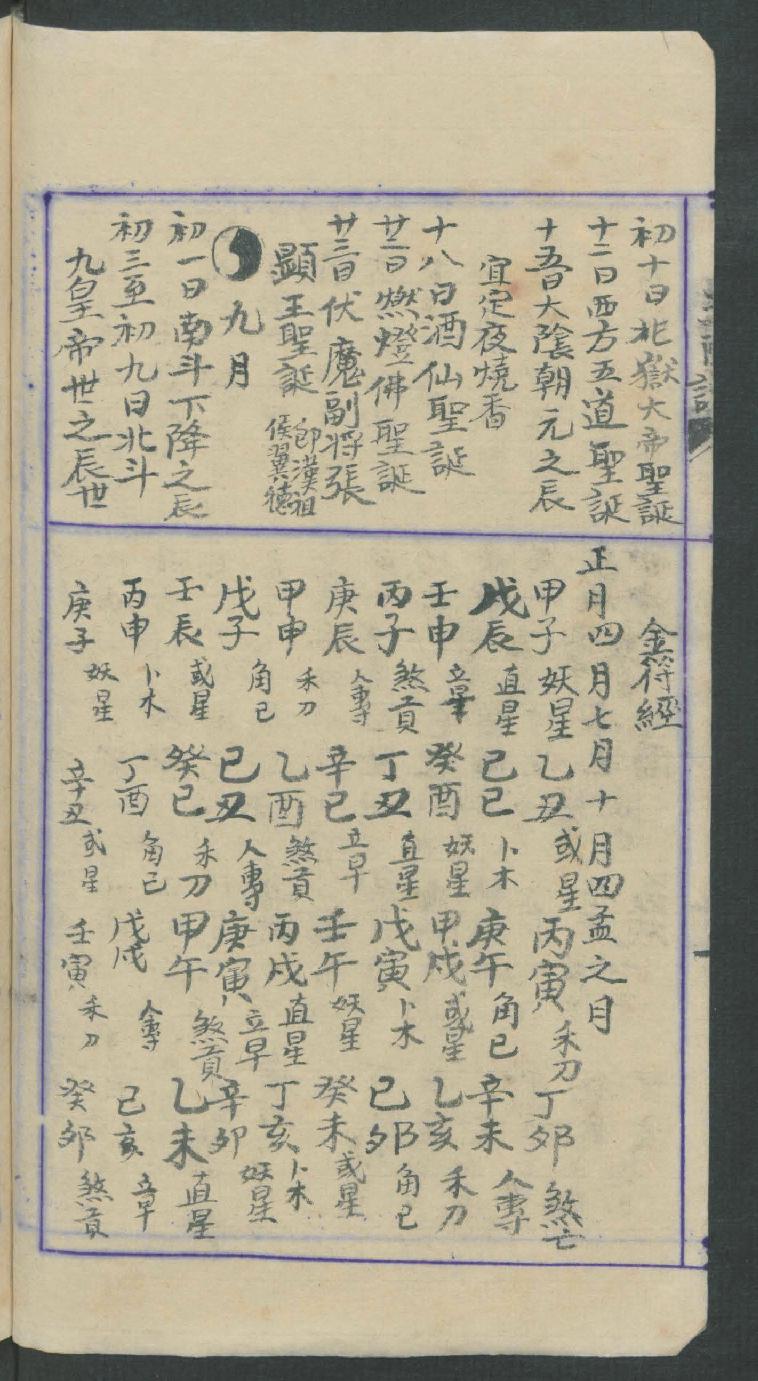 初十日北嶽大帝聖誕
十二日西方五道聖誕
十五日大陰朝元之辰
宜定夜燒香
十八日酒仙聖誕
廿二日燃燈佛聖誕
廿三日伏魔副将張
顯王聖誕 即漢祖侯翼德
九月
初一日南斗下降之辰
初三至初九日北斗
九皇帝世之辰世
金符經
正月四月七月十月四孟之月
甲子 妖星 乙丑 或星 丙寅 禾刀 丁夘 煞亡
戊辰 直星 己巳 卜木 庚午 角已 辛未 人專
壬申 立早 癸酉 妖星 甲戌 或星 乙亥 禾刀
丙子 煞貢 丁丑 直星 戊寅 卜木 己夘 角已
庚辰 人專 辛巳 立早 壬午 妖星 癸未 或星
甲申 禾刀 乙酉 煞貢 丙戌 直星 丁亥 卜木
戊子 角已 己丑 人專 庚寅 立早 辛夘 妖星
壬辰 或星 癸巳 禾刀 甲午 煞貢 乙未 直星
丙申 卜木 丁酉 角已 戊戌 人專 己亥 立早
庚子 妖星 辛丑 或星 壬寅 禾刀 癸夘 煞貢